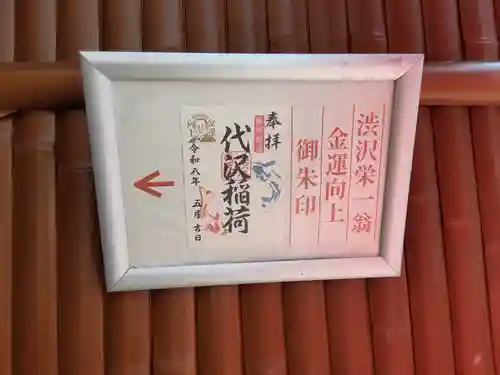 渋沢栄一翁
金運向上
御朱印
奉拝
代沢稲荷
令和八年 五月吉日